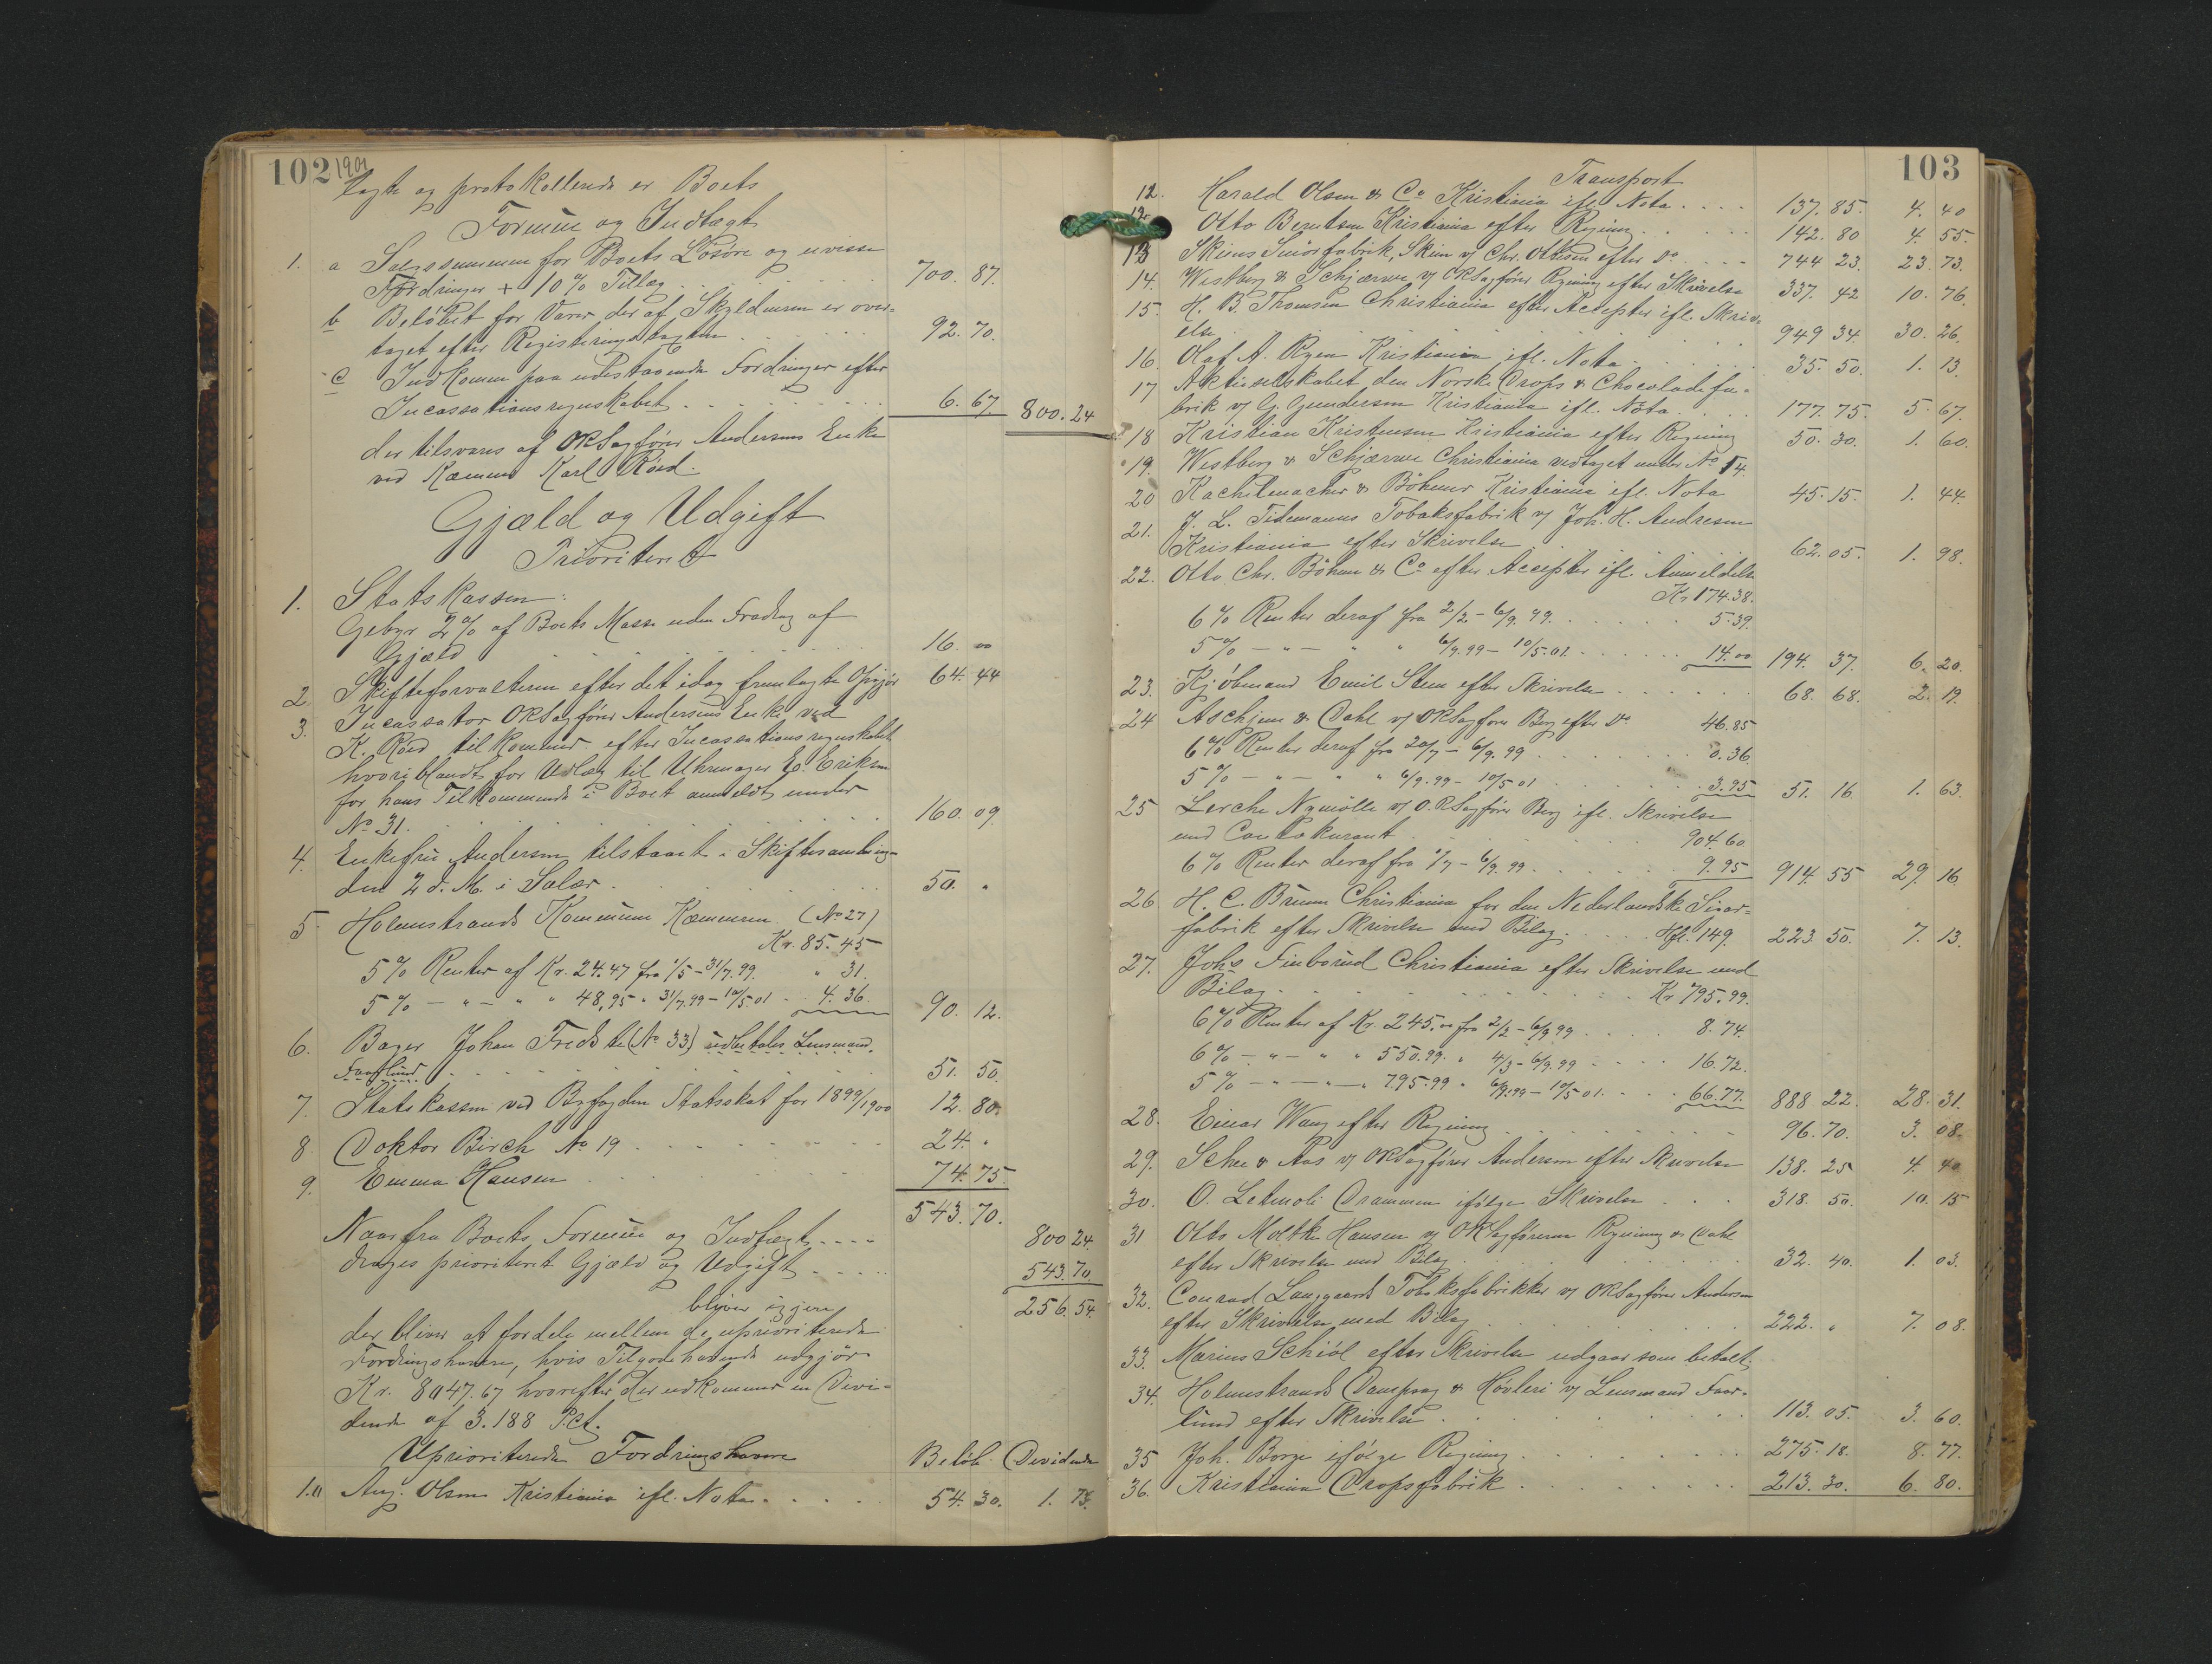 102 1901
lagte og protokollerede er Boets
Formue og Indtægt
1. a Salgssummen for Boets Løsøre og uvisse
Fordringer + 10% Tillæg . . . . 700. 87.
b Beløbet for Varer der af Skyldneren er over-
taget efter Registreringstaxten . . . 92. 70.
c Indkommen paa udestaaende Fordringer efter
Incassationsregnskabet . . . . . 6. 67. 800. 24
der tilsvares af ORSagfører Andersens Enke
ved Kæmner Karl Röed.
Gjæld og Udgift
Prioriteret
1. Statskassen:
Gebyr 2% af Boets Masse uden Fradrag af
Gjæld . . . . . 16. 00
2. Skifteforvalteren efter det idag fremlagte Opgjør 64. 44
3. Incassator ORSagfører Andersens Enke ved
K. Röed tilkommer efter Incassationsregnskabet
hvoriblandt for Udlæg til Uhrmager E. Eriksen
for hans Tilkommende i Boet anmeldt under
No 31. . . . . . 160. 09.
4. Enkefru Andersen tilstaaet i Skiftesamling
den 2 d. M. i Salær . . . . 50. "
5. Holmestrands Kommune Kæmneren (No 27)
Kr. 85. 45
5% Renter af Kr. 24.47 fra 1/5 - 31/7. 99. " 31.
5% - " - " " 48,95 " 31/7. 99 - 10/5 01 . . 4. 36. 90. 12.
6. Bager Johan Fredste (No 33) udbetales Lensmand
Faarlund . . . . . 51. 50.
7. Statskassen ved Byfogden Statsskat for 1899/1900 12. 80.
8 Doktor Birch No 19 . . . . 24. "
9. Emma Hansen . . . . 74. 75.
543. 70.
Naar fra Boets Formue og Indtægt . . . . 800 24.
drages prioriteret Gjæld og Udgift . . . . 543. 70.
bliver igjen 256. 54.
der bliver at fordele mellem de uprioriterede
Fordringshavere, hvis Tilgodehavende udgjør
Kr. 8047. 67 hvorefter der udkommer en Divi-
dende af 3. 188 Pct.
Uprioriterede Fordringshavere Beløb Dividende
1. Aug. Olsen Kristiania ifl. Nota . . . . 54. 30. 1. 73.
103
Transport
12. Harald Olsen & Co Kristiania ifl. Nota . . . . 137. 85. 4. 40
12. Otto Berntsen Kristiania efter Regning . . . . 142. 80 4. 55.
13 Skiens Smörfabrik, Skien v/ Chr. Ottesen efter do . . 744 23. 23. 73.
14. Westberg & Schjærve v/ ORSagfører Rygning efter Skrivelse 337. 42 10. 76.
15. H. B. Thomsen Christiania efter Accepter ifl. Skriv-
else . . . . . 949 34. 30. 26.
16. Olaf A. Ryen Kristiania ifl. Nota . . . . 35. 50. 1. 13.
17 Aktieselskabet den Norske Drops & Chocoladefa-
brik v/ G. Gundersen Kristiania ifl. Nota . . 177. 75. 5. 67.
18 Kristian Kristensen Kristiania efter Regning 50. 30. 1. 60.
19. Westberg & Schjærve Christiania vedtaget under No 14.
20 Kachelmacher & Böhmer Kristiania ifl. Nota 45. 15. 1. 44.
21. J. L. Tidemanns Tobaksfabrik v/ Joh. H. Andresen
Kristiania efter Skrivelse . . . . 62. 05. 1. 98.
22. Otto Chr. Böhmer & Co efter Accepter ifl. Anmeldelse
Kr 174.38.
6% Renter deraf fra 2/2 - 6/9. 99. . . . . 5. 39.
5% - " - " " 6/9. 99 - 10/5. 01. . . . . 14. 00 194. 37. 6. 20.
23. Kjøbmand Emil Steen efter Skrivelse . . . . 68. 68. 2. 19.
24 Aschjem & Dahl v/ ORSagfører Berg efter do 46. 85
6% Renter deraf fra 20/7 - 6/9. 99 . . . . 0. 36.
5% - " - " " 6/9. 99 - 10/5 01 . . . . 3. 95 51. 16 1. 63.
25 Lerche Nymölle v/ O.RSagfører Berg ifl. Skrivelse
med Contokurant . . . . 904. 60
6% Renter deraf fra 1/7 - 6/9. 99. . . . . 9. 95 914. 55 29. 16.
26. H. C. Bruun Christiania for den Nederlandske Sigar-
fabrik efter Skrivelse med Bilag . . . . Hfl. 149. 223 50. 7. 13.
27. Johs Finborud Christiania efter Skrivelse med
Bilag . . . . . Kr 795. 99.
6% Renter af Kr. 245. 00 fra 2/2 - 6/9 99 . . . . 8. 74.
6% - " - " " 550. 99. " 4/3 - 6/9. 99 . . . . 16. 72.
5% - " - " - " 795. 99 " 6/9. 99 - 10/5 01. . . . 66. 77. 888 22. 28. 31.
28. Einar Wang efter Regning . . . . 96. 70. 3. 08.
29. Schee & Aas v/ ORSagfører Andersen efter Skrivelse 138. 25 4. 40
30. O. Letmoli Drammen ifølge Skrivelse . . . 318. 50. 10. 15
31 Otto Moltke Hansen v/ ORSagførerne Rygning & Dahl
efter Skrivelse med Bilag . . . . 32. 40. 1. 03.
32. Conrad Langgaards Tobaksfabrikker v/ ORSagfører Andersen
efter Skrivelse med Bilag . . . . 222. " 7. 08.
33. Marius Schiöl efter Skrivelse udgaar som betalt.
34. Holmestrands Dampsag & Høvleri v/ Lensmand Faar-
lund efter Skrivelse . . . . 113. 05. 3. 60.
35 Joh. Borge ifølge Regning . . . . 275. 18. 8. 77.
36. Kristiania Dropsfabrik . . . . 213. 30. 6. 80.